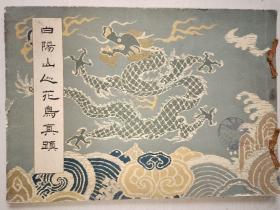 白陽山人花鳥真蹟